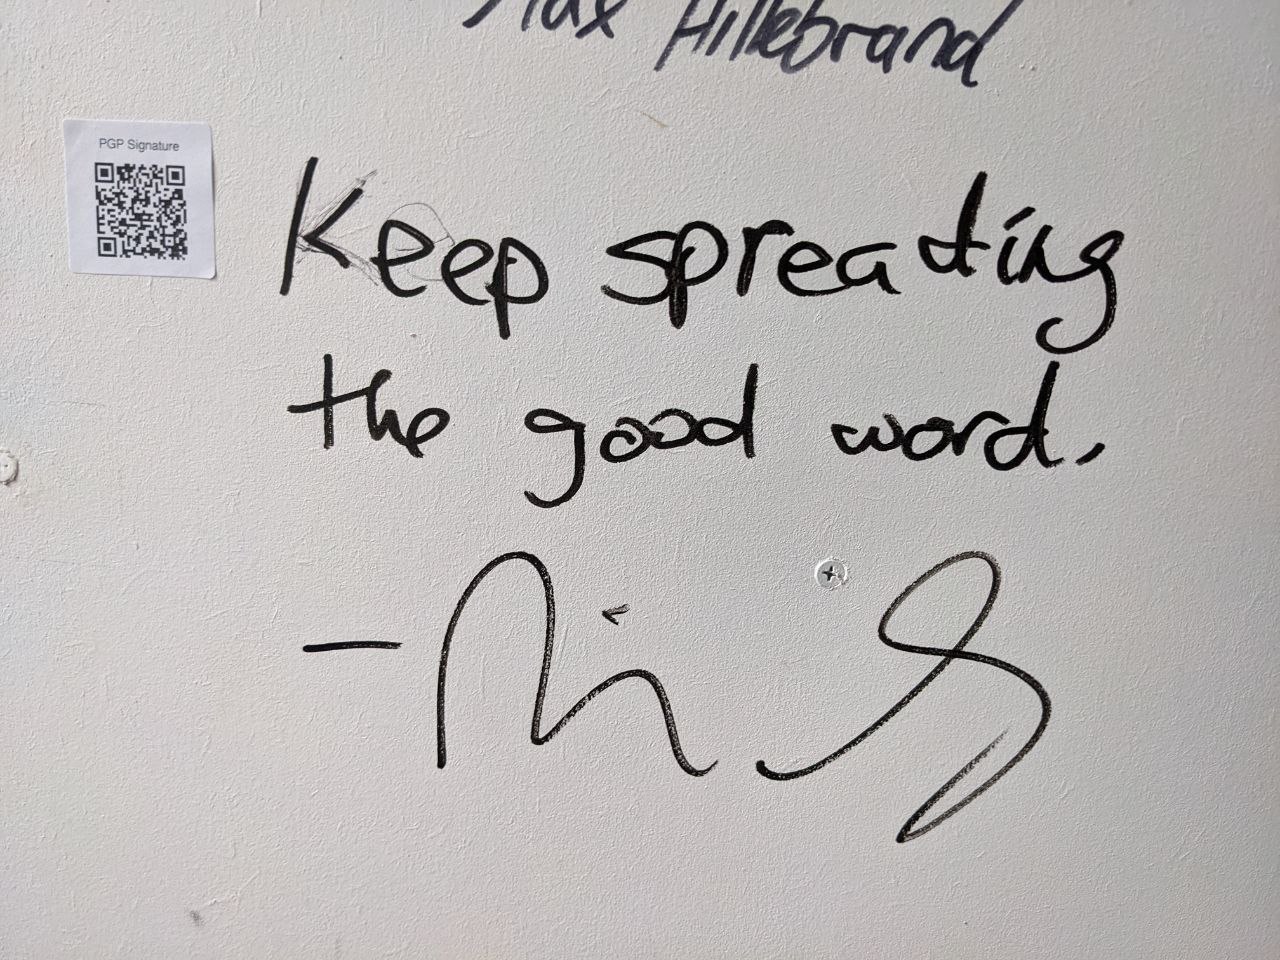 Max Hillebrand
PGP Signature
Keep spreading
the good word.